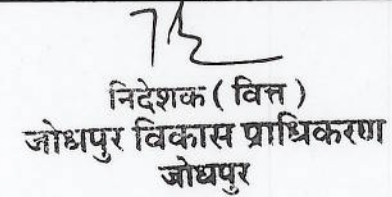 निदेशक ( वित्त )
जोधपुर विकास प्राधिकरण
जोधपुर